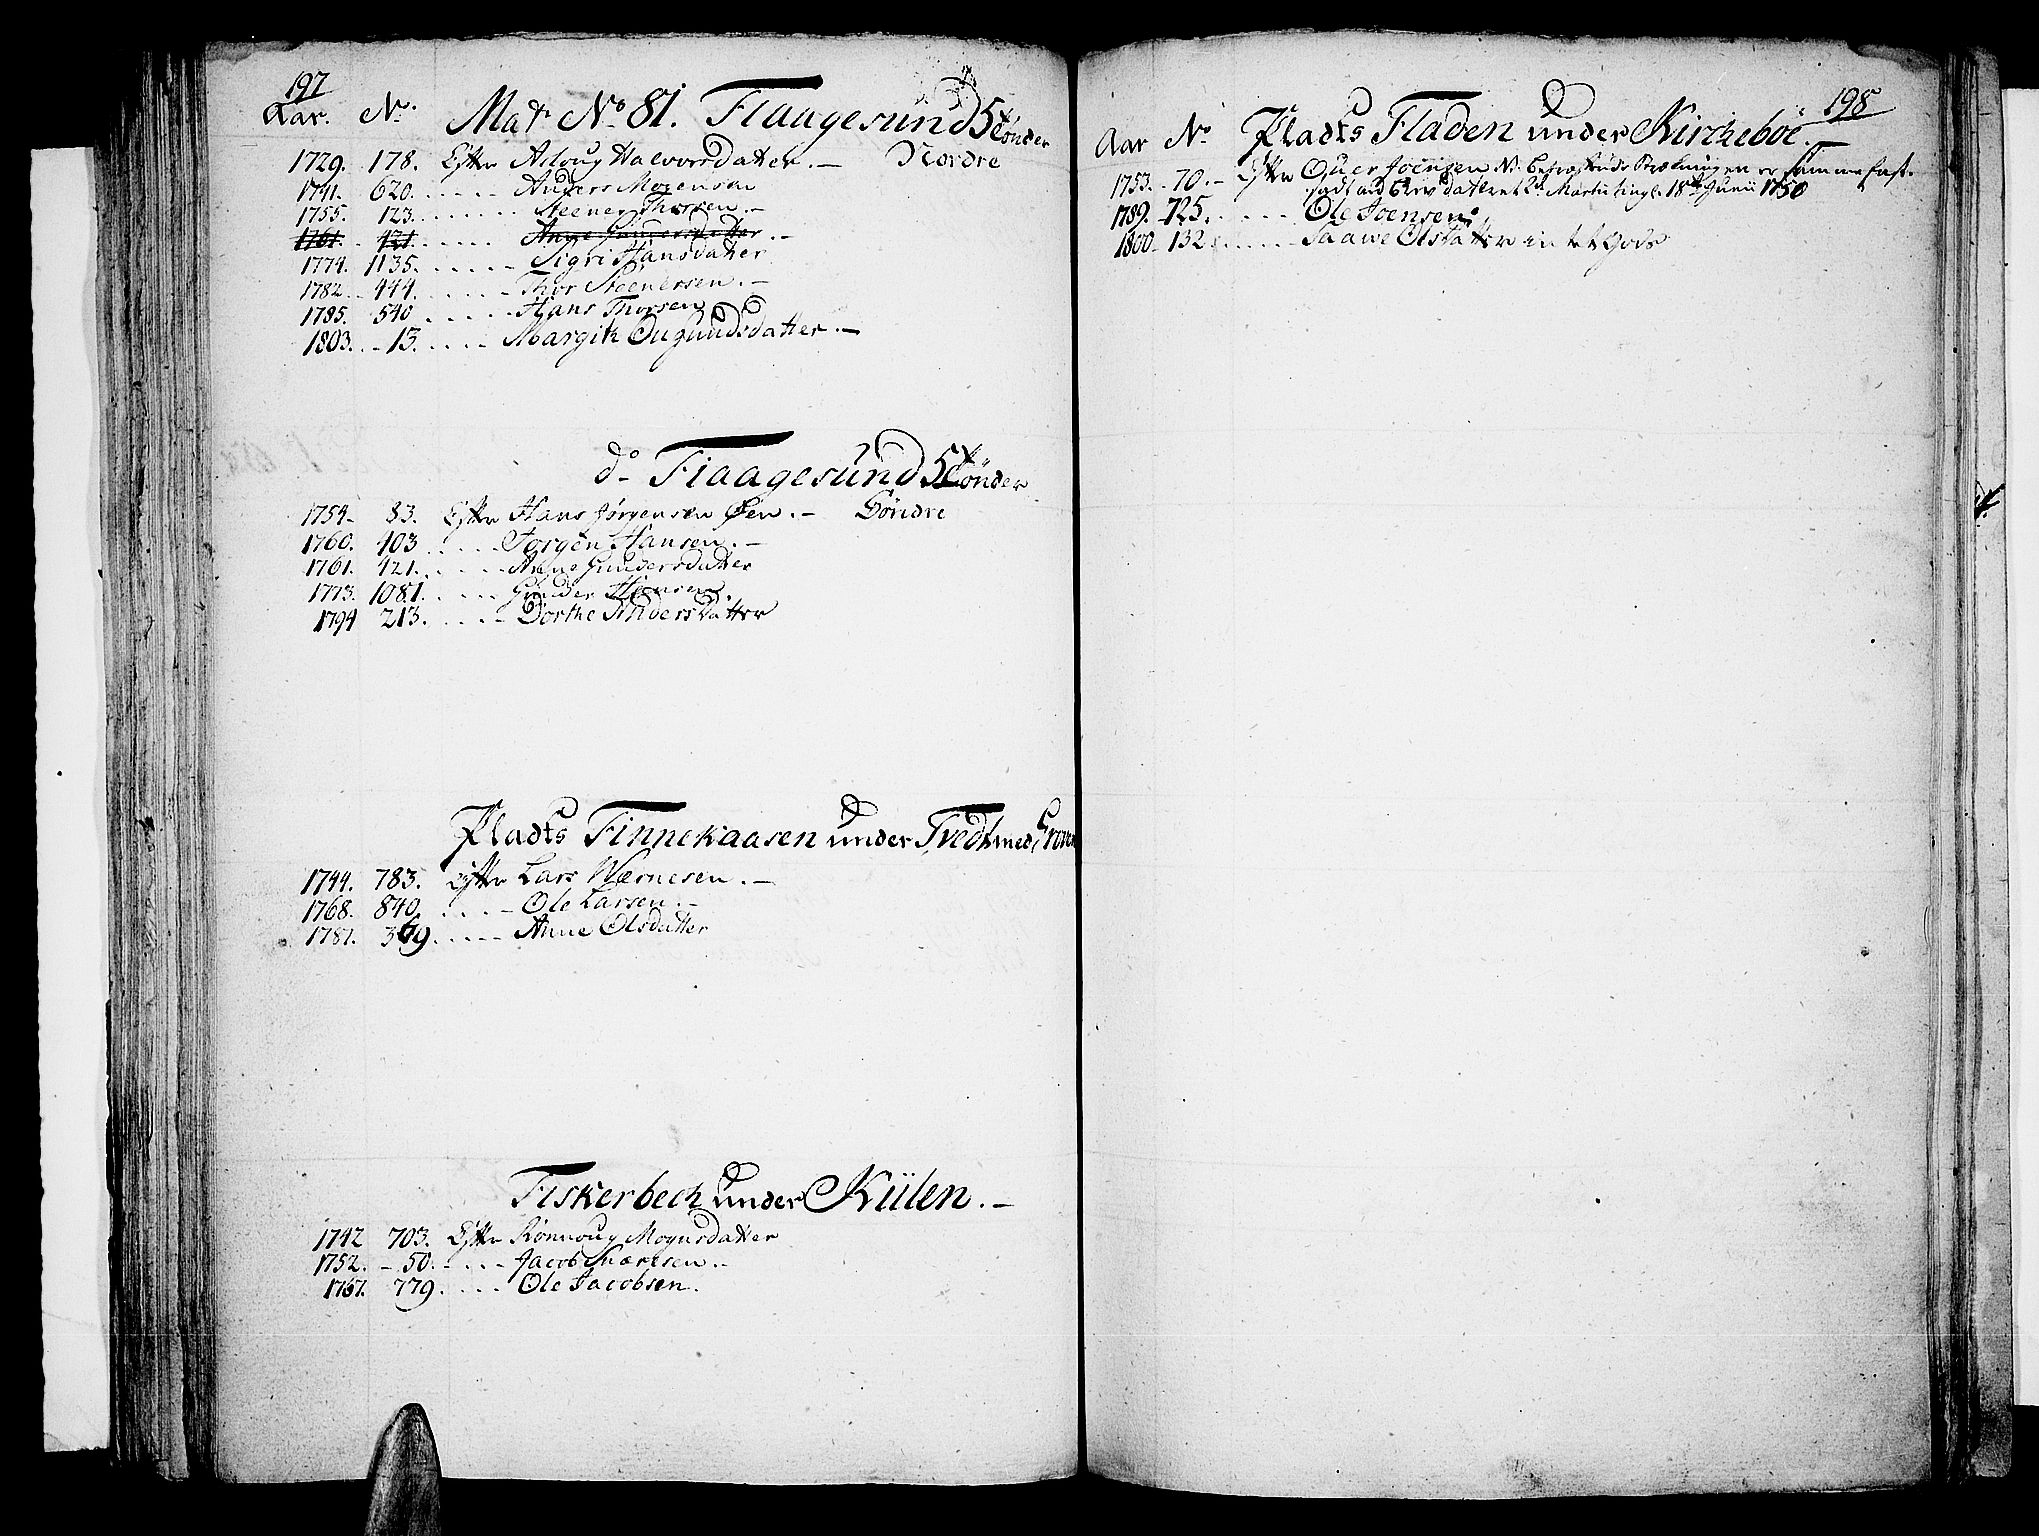 197
Aar. No. Matr No. 81. Flaagesund 5 tönder
1729. 178. Efter Aaloug Halvorsdatter. — Nordre
1741. 620. Anders
1755. 123. Steener Thorsen. —
1761. 421. Anne Gundersdatter. —
1774. 1135. Sigri Hansdatter
1782. 444. Thor Steenersen. —
1785. 540 Hans Thorsen
1803. 13. Margith Ougundsdatter. —
do Flaagesund 5 tönder
1754. 83. Efter Hans Jörgensen Øen. — Söndre
1760. 403 Jorgen Hansen. —
1761. 421. Anne Gundersdatter
1773. 1081. Gunder Hansen
1794 213. Dorthe Andersdatter
Pladts Finnekaasen under Tvedt med
1744. 783. Efter Lars Wærnesen. —
1768. 840. Ole Larsen. —
1787. 369. Anne Olsdatter
Fiskerbech under Kiilen. —
1742 703. Efter Rønnoug Mognsdatter
1752. 50. Jacob. —
1767. 779. Ole Jacobsen.
198
Aar No Pladts Fladen under Kircheböe.
1753. 70. Efter Joensen er samme fast-
sadt dateret 18de Junii 1750
1789. 725. Ole Joensen.
1800. 132. Saawe Olsdatter intet Gods